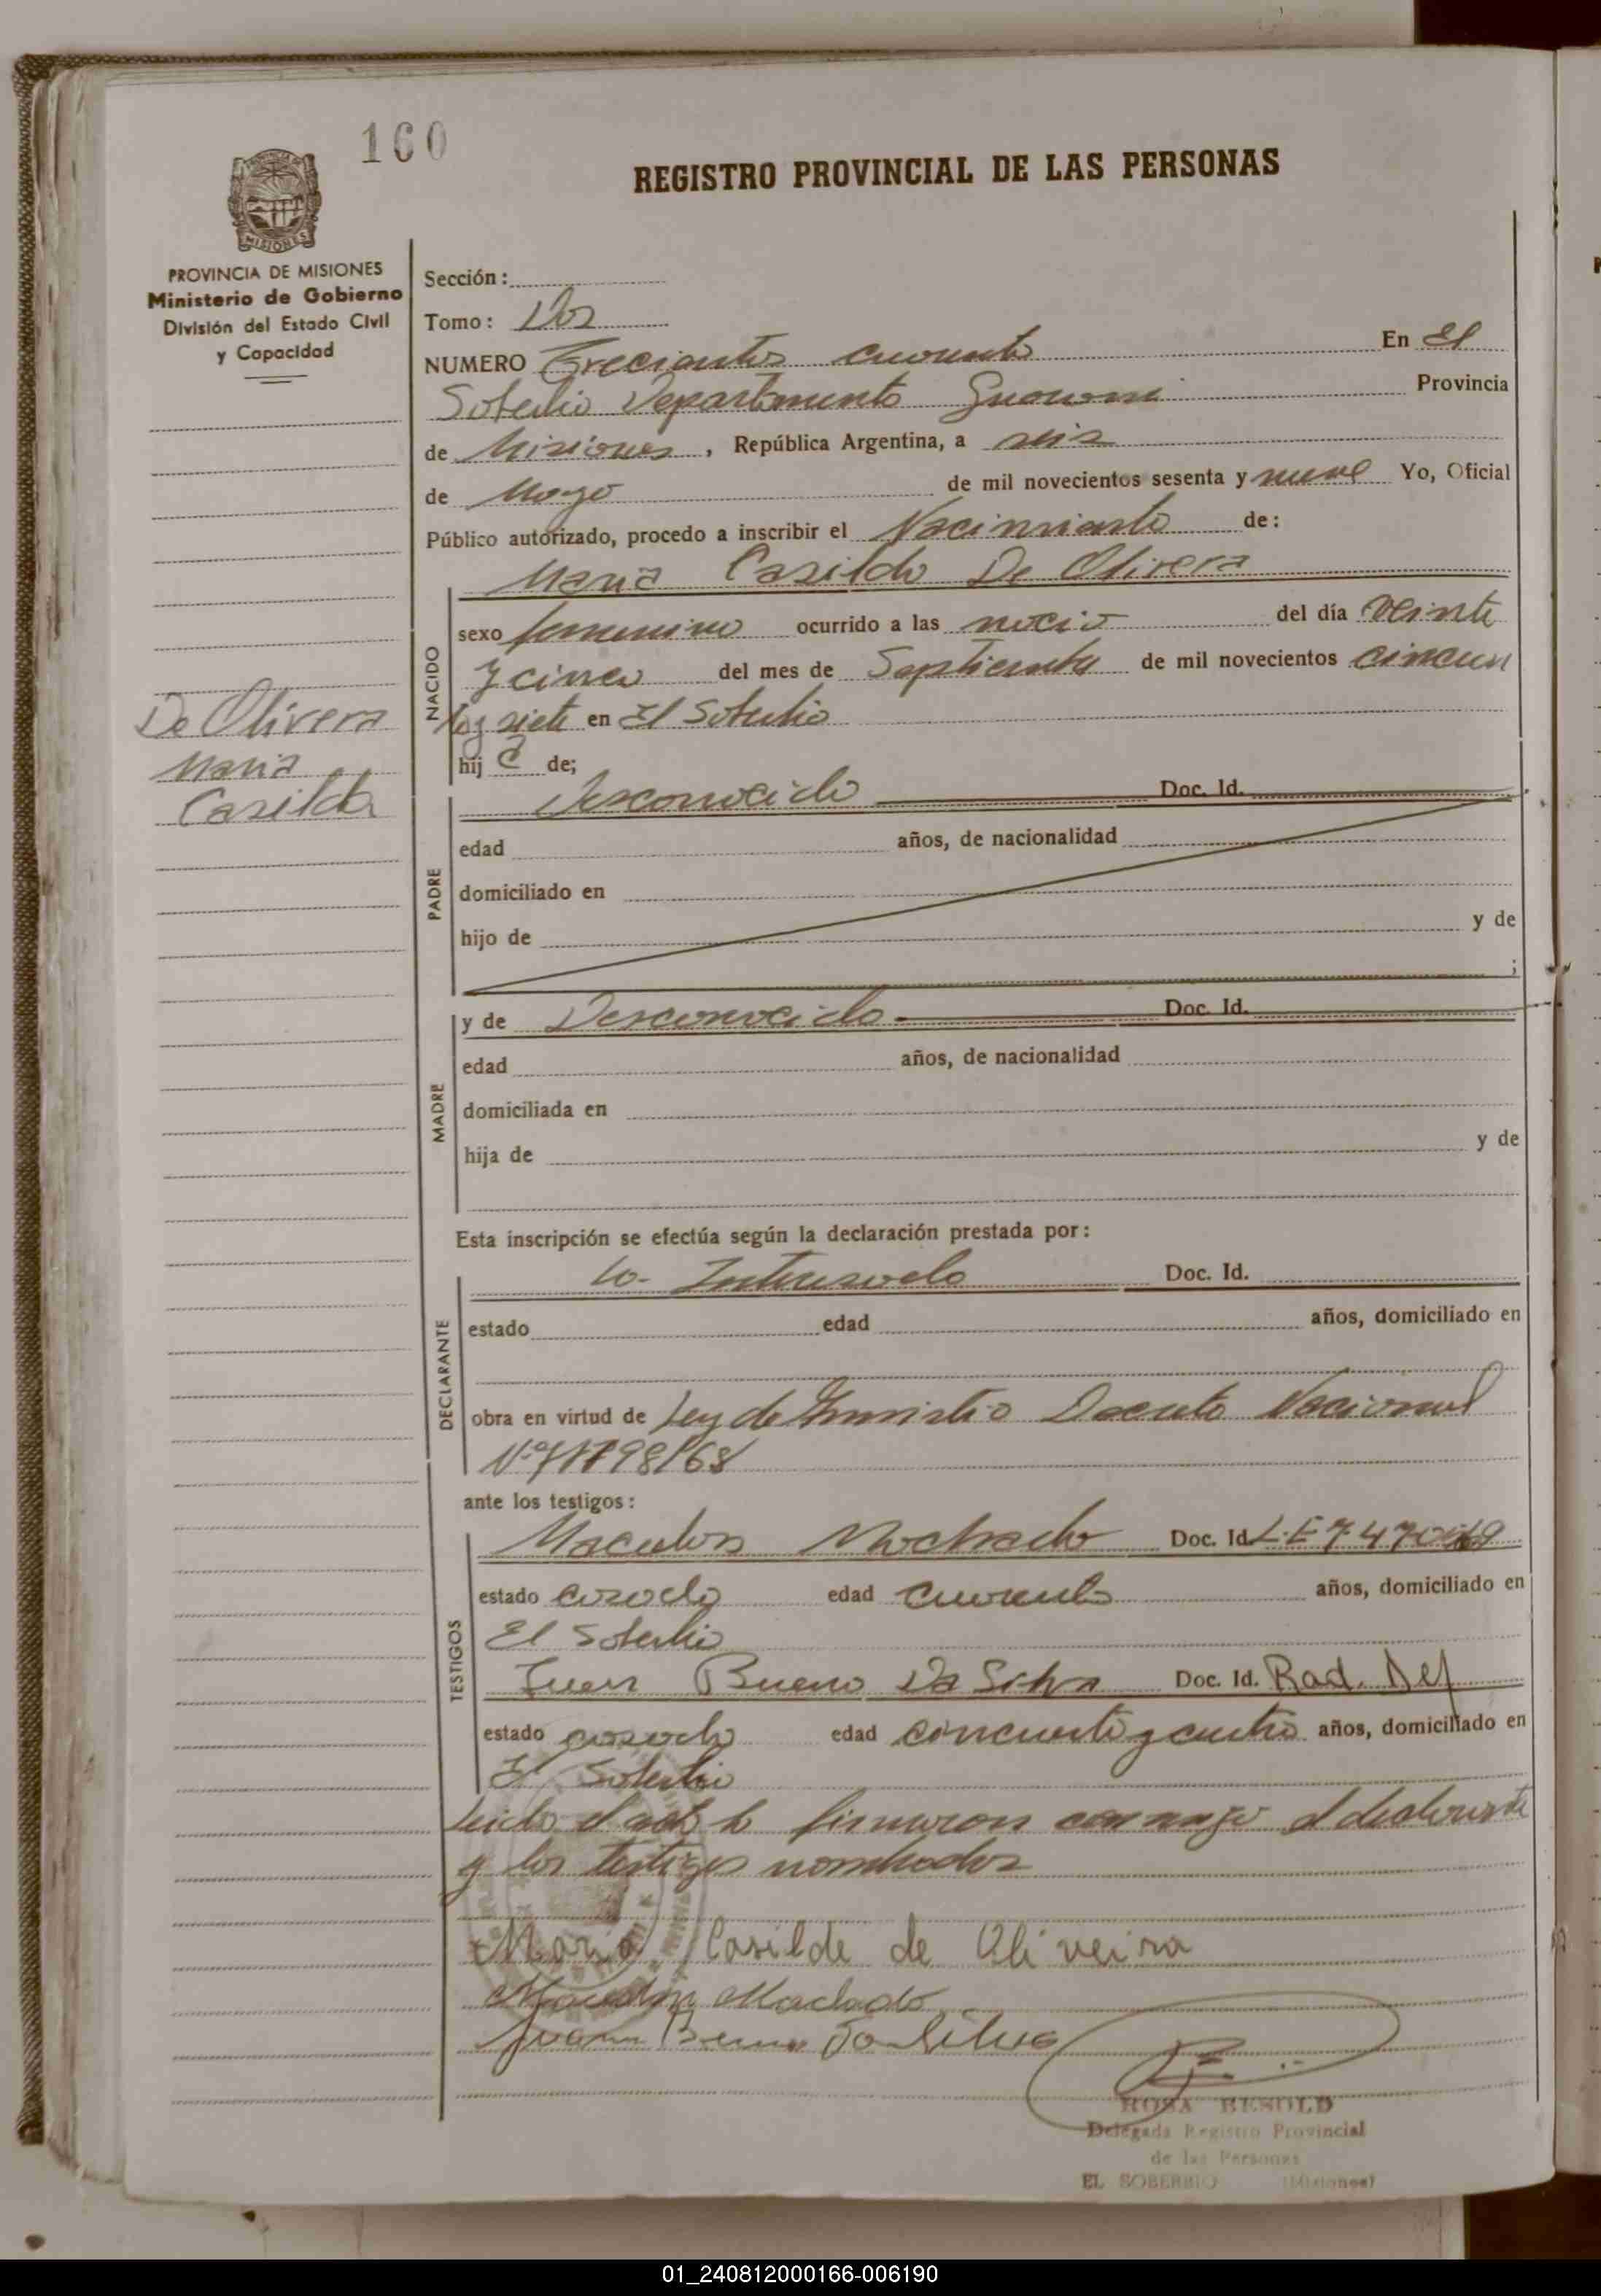 160
REGISTRO PROVINCIAL DE LAS PERSONAS
MISIONES
PROVINCIA DE MISIONES
Ministerio de Gobierno
División del Estado Civil
y Capacidad
Sección:
Tomo: Dos
NUMERO Trecientos cuarenta En El
Soberbio Departamento Guarani Provincia
de Misiones, República Argentina, a seis
de Mayo de mil novecientos sesenta y nueve Yo, Oficial
Público autorizado, procedo a inscribir el Nacimiento de:
Maria Casilda De Olivera
NACIDO
sexo femenino ocurrido a las del día veinte
y cinco del mes de Septiembre de mil novecientos cincuen
ta y siete en El Soberbio
hij a de;
De Olivera
Maria
Casilda
PADRE
Desconocido Doc. Id.
edad años, de nacionalidad
domiciliado en
hijo de y de
;
MADRE
y de Desconocido Doc. Id.
edad años, de nacionalidad
domiciliada en
hija de y de
Esta inscripción se efectúa según la declaración prestada por:
DECLARANTE
La Interesada Doc. Id.
estado edad años, domiciliado en
obra en virtud de Ley de Amnistia Decreto Nacional
ante los testigos:
TESTIGOS
Machado Doc. Id. L.E 7.470
estado casado edad cuarenta años, domiciliado en
El Soberbio
Juan Bueno Da Silva Doc. Id. Rad. Def
estado casado edad cincuenta y cuatro años, domiciliado en
El Soberbio
Leido el acta la firmaron conmigo el declarante
y los testigos nombrados
Maria Casilde de Oliveira
Machado
Juan Bueno Da Silva
ROSA BESOLD
Delegada Registro Provincial
de las Personas
EL SOBERBIO (Misiones)
01_240812000166-006190